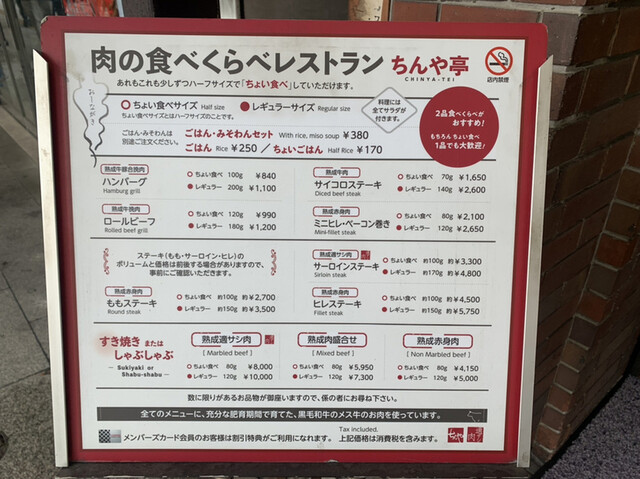 肉の食べくらべレストラン ちんや亭
CHINYA-TEI
店内禁煙
あれもこれも少しずつハーフサイズで「ちょい食べ」していただけます。
おしながき
○ ちょい食べサイズ Half size ● レギュラーサイズ Regular size
ちょい食べサイズとはハーフサイズのことです。
料理には
全てサラダが
付きます。
2品食べくらべが
おすすめ!
もちろん ちょい食べ
1品でも大歓迎!
ごはん・みそわんは
別途ご注文ください。
ごはん・みそわんセット With rice, miso soup ¥380
ごはん Rice ¥250 / ちょいごはん Half Rice ¥170
熟成牛豚合挽肉
ハンバーグ
Hamburg grill
○ ちょい食べ 100g ¥840
● レギュラー 200g ¥1,100
熟成牛肉
サイコロステーキ
Diced beef steak
○ ちょい食べ 70g ¥1,650
● レギュラー 140g ¥2,600
熟成牛挽肉
ロールビーフ
Rolled beef grill
○ ちょい食べ 120g ¥990
● レギュラー 180g ¥1,200
熟成赤身肉
ミニヒレ・ベーコン巻き
Mini-fillet steak
○ ちょい食べ 80g ¥2,100
● レギュラー 120g ¥2,650
ステーキ(もも・サーロイン・ヒレ)の
ボリュームと価格は前後する場合がありますので、
事前にご確認いただきます。
熟成適サシ肉
サーロインステーキ
Sirloin steak
○ ちょい食べ 約100g ¥3,300
● レギュラー 約170g ¥4,800
熟成赤身肉
ももステーキ
Round steak
○ ちょい食べ 約100g ¥2,700
● レギュラー 約150g ¥3,500
熟成赤身肉
ヒレステーキ
Fillet steak
○ ちょい食べ 約100g ¥4,500
● レギュラー 約150g ¥5,750
すき焼き または
しゃぶしゃぶ
— Sukiyaki or
Shabu-shabu —
熟成適サシ肉
[ Marbled beef ]
○ ちょい食べ 80g ¥8,000
● レギュラー 120g ¥10,000
熟成肉盛合せ
[ Mixed beef ]
○ ちょい食べ 80g ¥5,950
● レギュラー 120g ¥7,300
熟成赤身肉
[ Non Marbled beef ]
○ ちょい食べ 80g ¥4,150
● レギュラー 120g ¥5,000
数に限りがあるお品物が御座いますので、係の者にお尋ね下さい。
全てのメニューに、充分な肥育期間で育てた、黒毛和牛のメス牛のお肉を使っています。
メンバーズカード会員のお客様は割引特典がご利用になれます。
Tax included.
上記価格は消費税を含みます。
ちんや